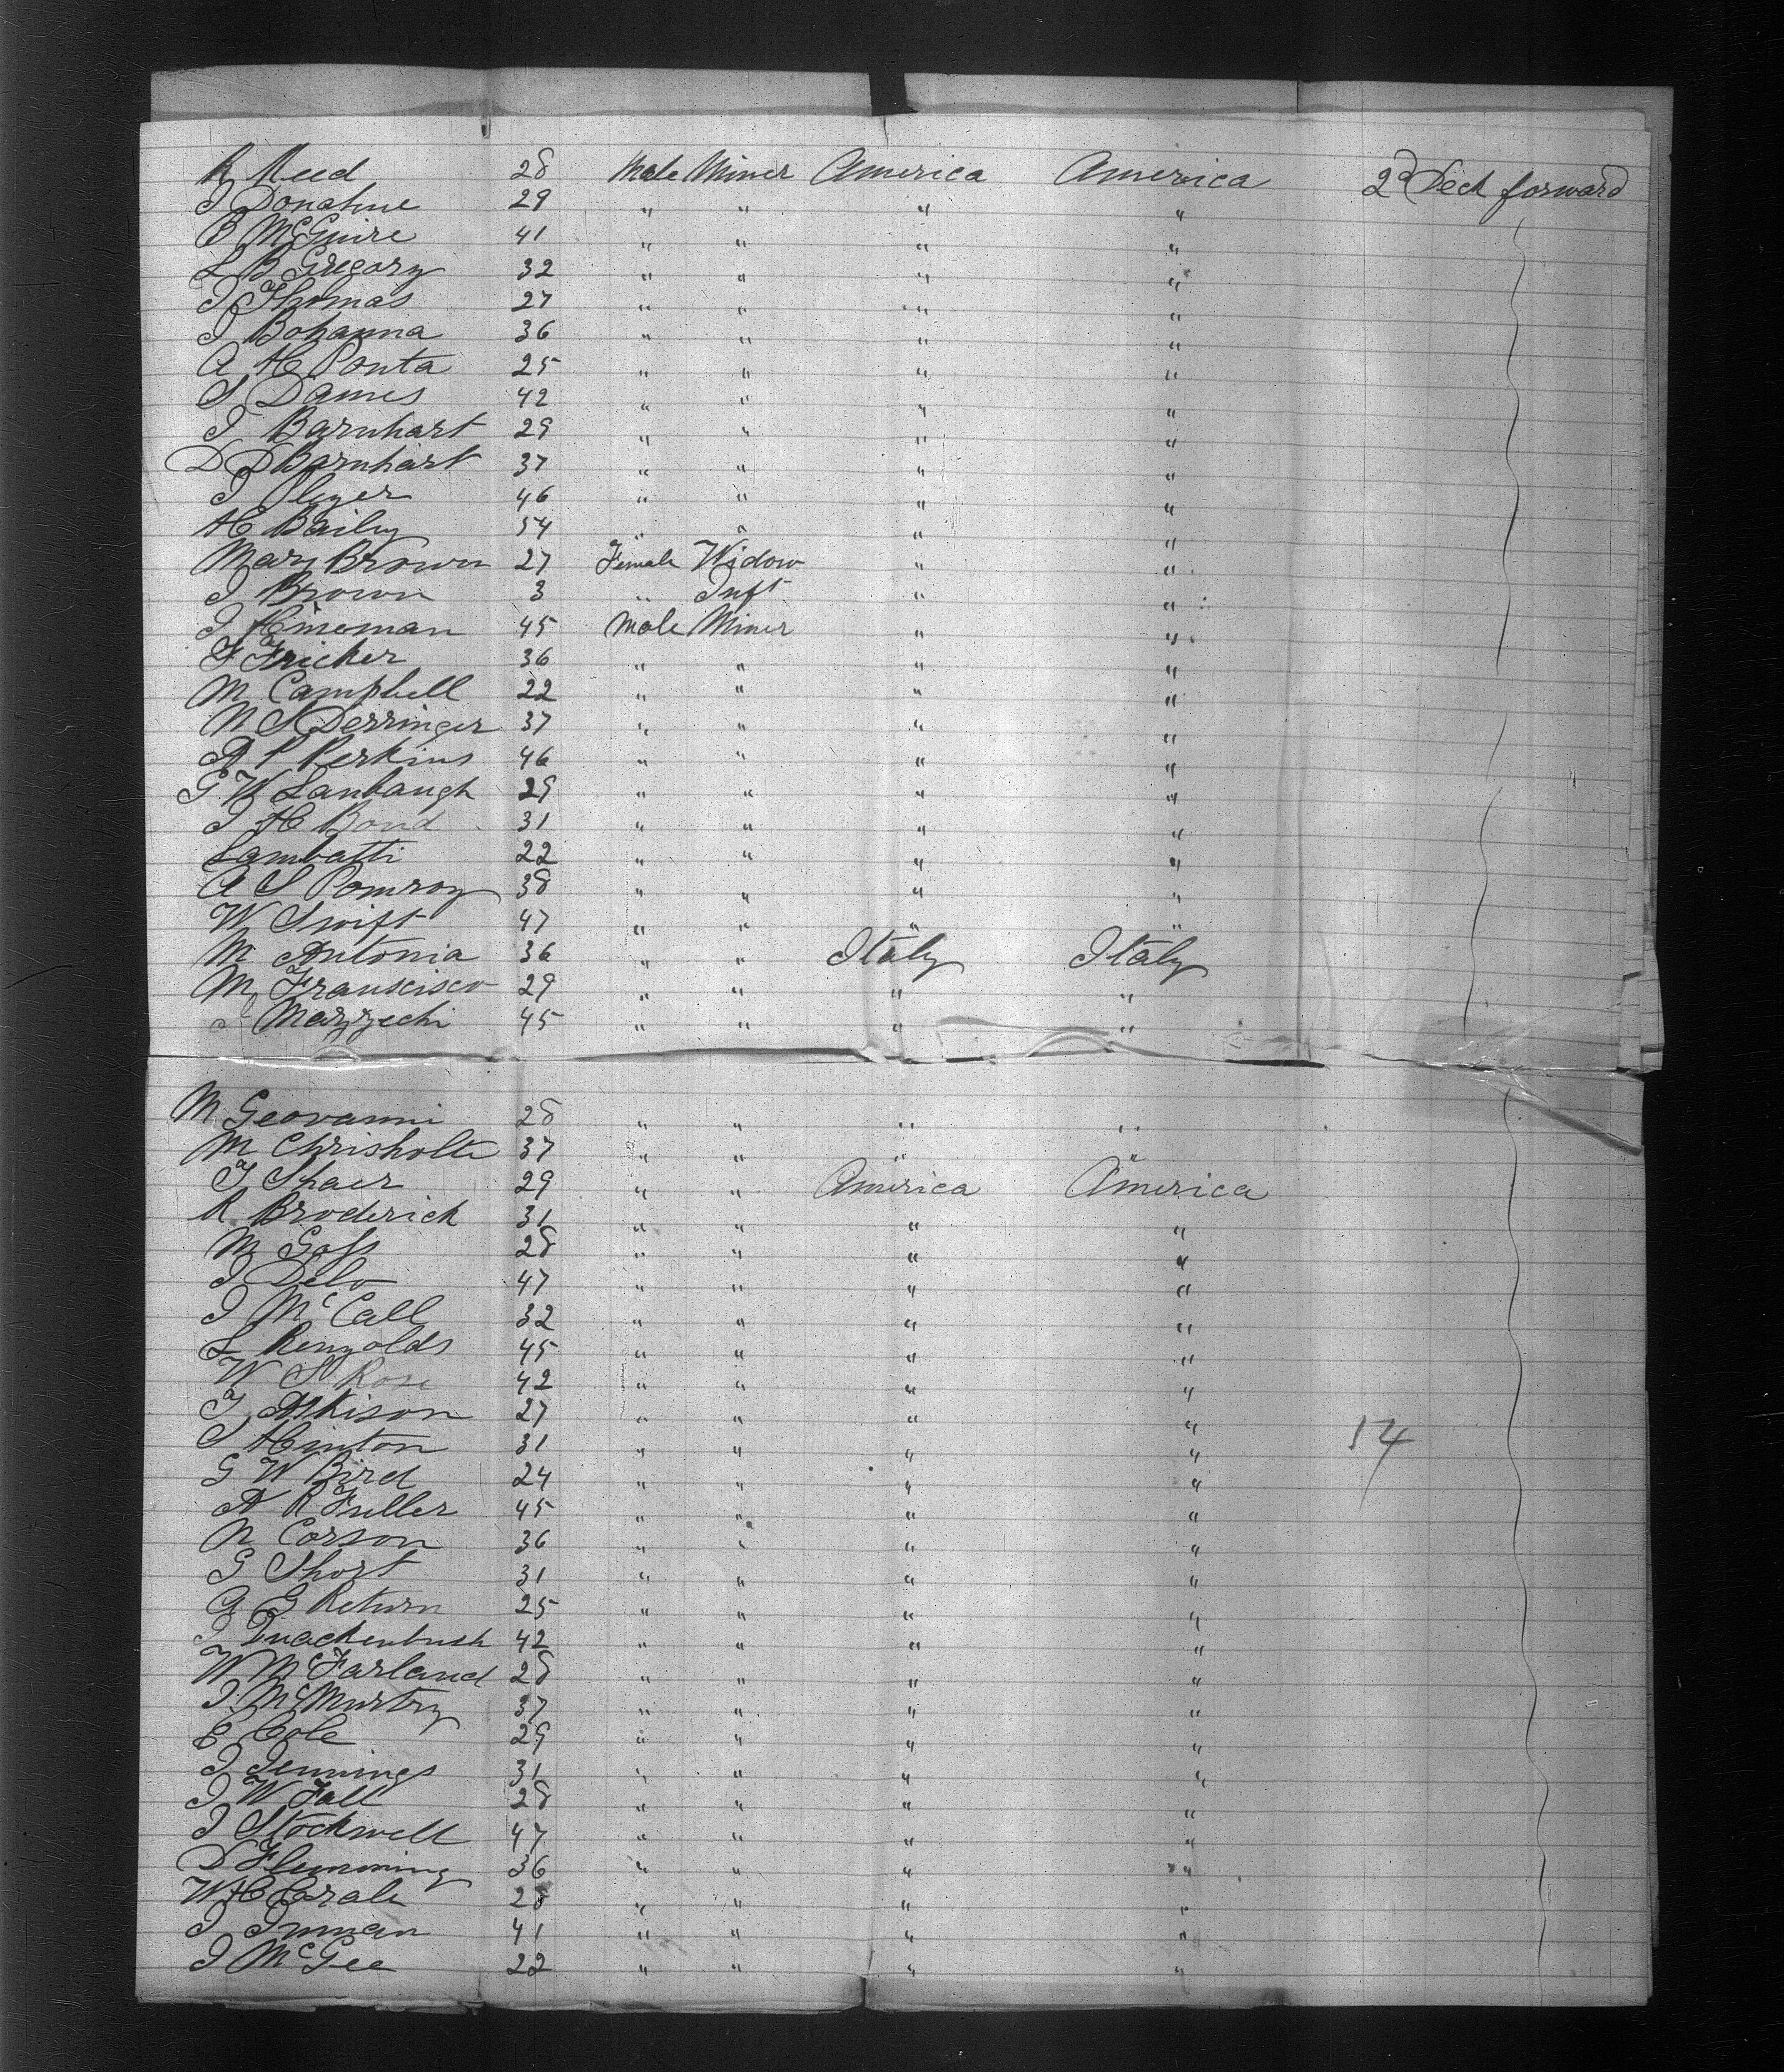 R Meed 28 Male Miner America America 2d Deck forward
J Donahue 29 " " " "
B McGuire 41 " " " "
L B Gregory 32 " " " "
J Thomas 27 " " " "
J Bohanna 36 " " " "
A H Ponta 25 " " " "
S Dames 42 " " " "
J Barnhart 29 " " " "
D D Barnhart 37 " " " "
J Plyer 46 " " " "
H Baily 54 " " " "
Mary Brown 27 Female Widow " "
J Brown 3 " Inft " "
J Hineman 45 Male Miner " "
F Fricker 36 " " " "
M Campbell 22 " " " "
N S Derringer 37 " " " "
A P Perkins 46 " " " "
G W Lanbaugh 29 " " " "
J H Bond 31 " " " "
Lambatti 22 " " " "
A S Pomroy 38 " " " "
W Swift 47 " " " "
M Antonia 36 " " Italy Italy
M Franscisco 29 " " " "
J Mazzechi 45 " " " "
M Geovanni 28 " " " "
M Chrisholte 37 " " " "
T Shaer 29 " " America America
R Broderick 31 " " " "
M Goff 28 " " " "
J Delo 47 " " " "
J McCall 32 " " " "
L Rengolds 45 " " " "
W S Rose 42 " " " "
T Atkison 27 " " " "
S Hinton 31 " " " " 14
G W Bird 24 " " " "
A R Fuller 45 " " " "
N Corson 36 " " " "
G Short 31 " " " "
A G Return 25 " " " "
J Quackenbush 42 " " " "
W McFarland 28 " " " "
J. McMurtry 37 " " " "
C Cole 29 " " " "
J Jennings 31 " " " "
J W Fall 28 " " " "
J Stockwell 47 " " " "
D Flemming 36 " " " "
W H Crale 28 " " " "
J Inman 41 " " " "
J McGee 22 " " " "